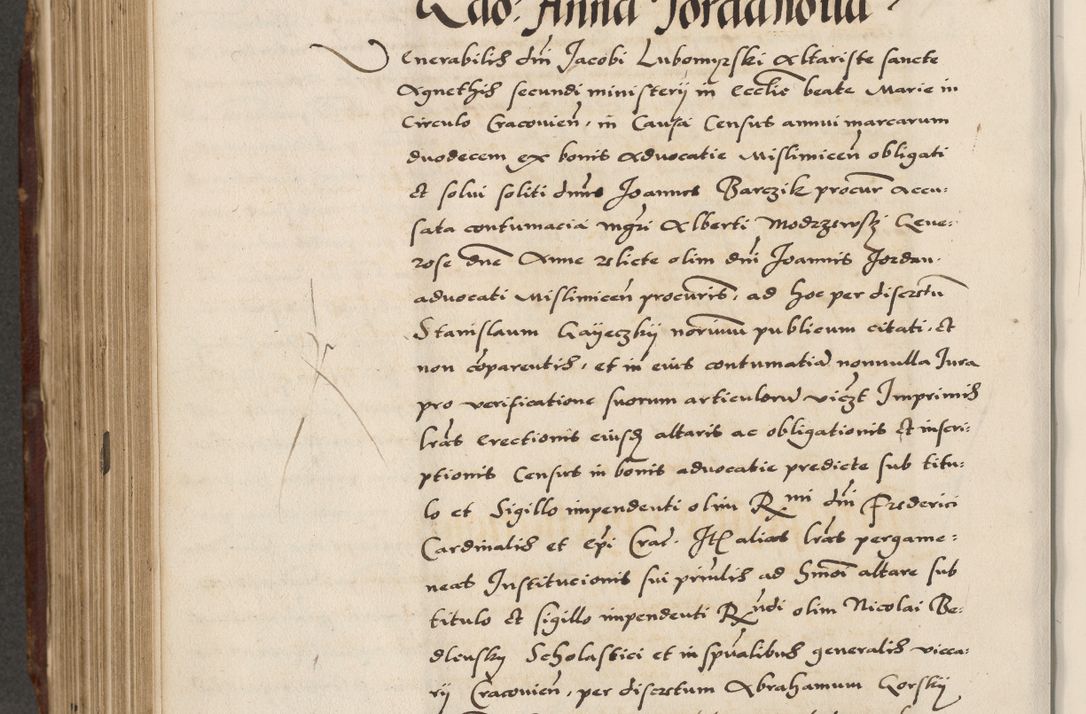 Rdo: Anna Jordanoua
Venerabilis dni Jacobi Lubomyrski altariste sancte
Agnethis secundi ministerij in Ecclie beate Marie in
Circulo Cracovien, in Causa Census annui marcarum
duodecem ex bonis advocatie Mislimicen obligati
et solui soliti dnus Joannes Barczik procur accu:
sata contumacia mgri Alberti Modrzewskj Gene:
rose dne Anne relicte olim dni Joannis Jordan
advocati Mislimicen procuris, ad hoc per discretu
Stanislaum Gayeczkij norium publicum citati, et
non coparentis, et in eius contumatia nonnulla Jura
pro verificatione suorum articuloru viczt Imprimis
lras Erectionis eiusd altaris ac obligationis et inscri:
ptionis Census in bonis advocatie predicte sub titu:
lo et Sigillo impendenti olim Rmi dni Frederici
Cardinalis et Epi Crac. Ite alias lras pergame:
neas Institucionis sui priulis ad hmoi altare sub
titulo et sigillo impendenti Rndi olim Nicolai Be:
dlensky Scholastici et in spualibus generalis vicca:
rij Cracovien, per discretum Abrahamum Gorskij